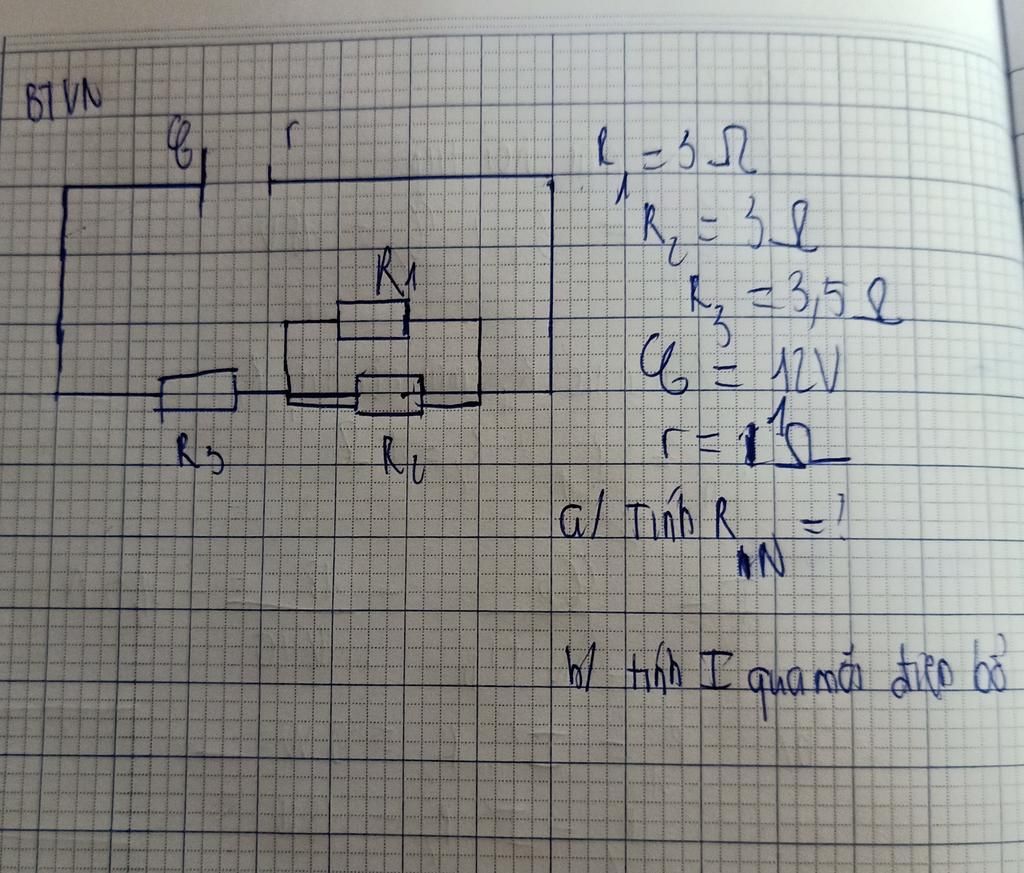 BTVN
ℰ r
R1
R3 R2
R1 = 3 Ω
R2 = 3 Ω
R3 = 3,5 Ω
ℰ = 12V
r = 1 Ω
a/ Tính RN = ?
b/ tính I qua mỗi điện bở